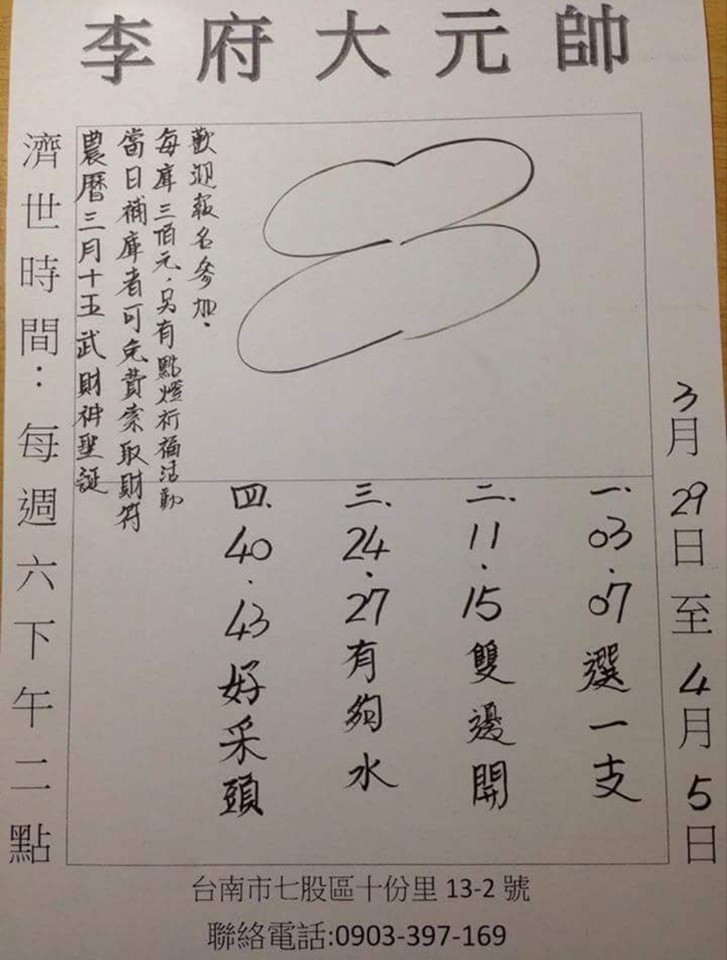 李府大元帥
3月29日至4月5日
一.03.07選一支
二.11.15雙邊開
三.24.27有夠水
四.40.43好采頭
農曆三月十五武財神聖誕
當日補庫者可免費索取財符
每庫三佰元.另有點燈祈福活動
歡迎報名參加.
濟世時間：每週六下午二點
台南市七股區十份里13-2號
聯絡電話:0903-397-169